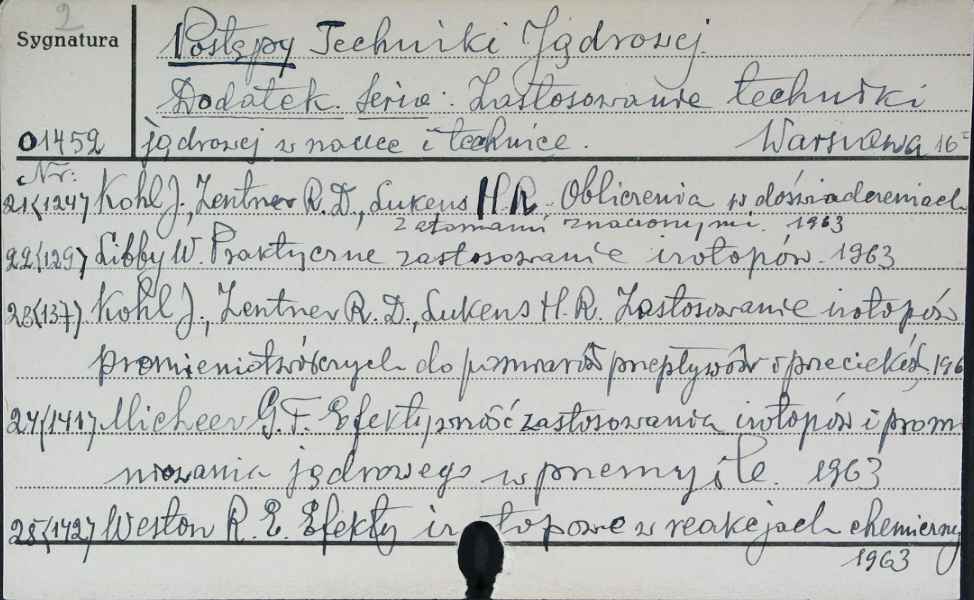 2
Sygnatura
Postępy Techniki Jądrowej.
Dodatek. Seria: Zastosowanie techniki
01452 jądrowej w nauce i technice. Warszawa 16=
Nr:
21(124) Kohl J., Zentner R. D., Lukens H. R. Obliczenia w doświadczeniach
z atomami znaczonymi. 1963
22(129) Libby W. Praktyczne zastosowanie izotopów. 1963
23(137) Kohl J., Zentner R. D., Lukens H. R. Zastosowanie izotopów
promieniotwórczych do pomiarów przepływów i przecieków 196
24(141) Micheev G. F. Efektywność zastosowania izotopów i promie
niowania jądrowego w przemyśle. 1963
25(142) Weston R. E. Efekty izotopowe w reakcjach chemiczny
1963